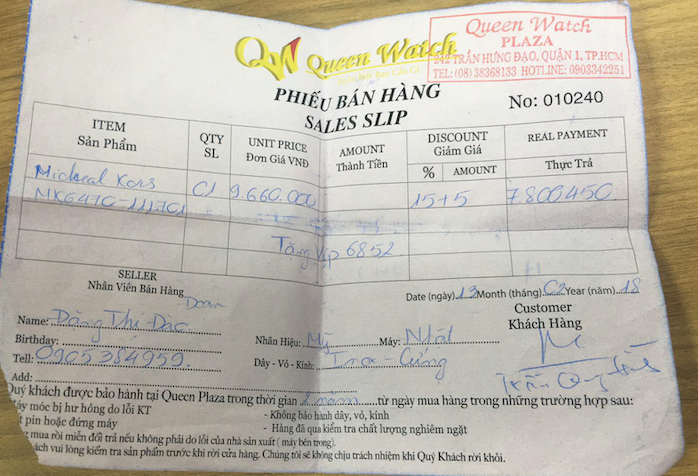 Queen Watch
PLAZA
242 TRẦN HƯNG ĐẠO, QUẬN 1, TP.HCM
TEL: (08) 38368133 HOTLINE: 0903342251
QW Queen Watch
PHIẾU BÁN HÀNG
SALES SLIP
No: 010240
ITEM
Sản Phẩm
QTY
SL
UNIT PRICE
Đơn Giá VNĐ
AMOUNT
Thành Tiền
DISCOUNT
Giảm Giá
% AMOUNT
REAL PAYMENT
Thực Trả
Micheal Kors 01 9.660.000 15+5 7.800.450
MK6470-111701
Tặng Vip 6852
SELLER
Nhân Viên Bán Hàng
Date (ngày) 13 Month (tháng) 02 Year (năm) 18
Customer
Khách Hàng
Đoan
Name: Đặng Thị Đào
Nhãn Hiệu: Mỹ Máy: Nhật
Birthday:
Tell: 0905384959.
Dây - Vỏ - Kính: Inox - Cứng
Trần
Add:
Quý khách được bảo hành tại Queen Plaza trong thời gian 2 năm từ ngày mua hàng trong những trường hợp sau:
Máy móc bị hư hỏng do lỗi KT - Không bảo hành dây, vỏ, kính
pin hoặc đứng máy - Hàng đã qua kiểm tra chất lượng nghiêm ngặt
mua rồi miễn đổi trả nếu không phải do lỗi của nhà sản xuất ( máy bên trong).
vui lòng kiểm tra sản phẩm trước khi rời cửa hàng. Chúng tôi sẽ không chịu trách nhiệm khi Quý Khách rời khỏi.